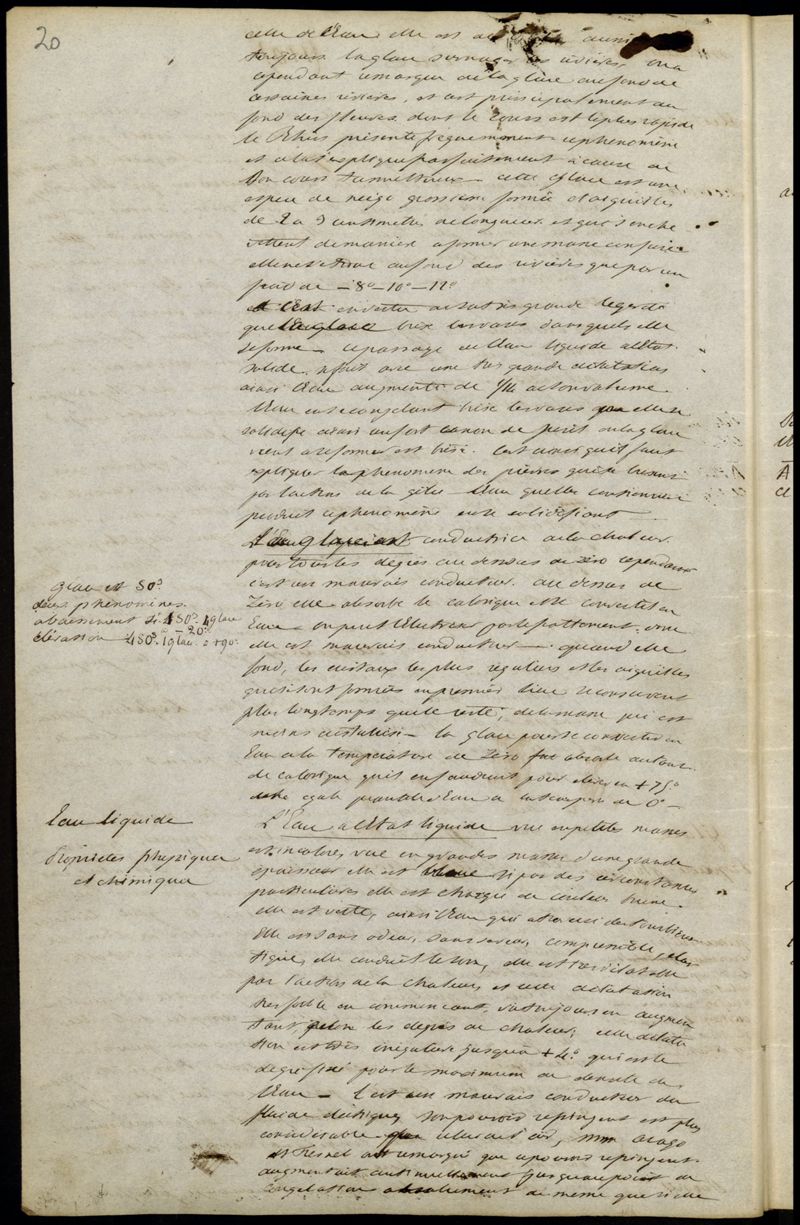 20
celle de l'Eau elle est
toujours la glace surnage les rivières on a
cependant remarqué de la glace au fond de
certaines rivières, et c'est principalement au
fond des fleuves dont le cours est le plus rapide
le Rhin présente fréquemment ce phénomène
et cela s'explique parfaitement à cause de
son cours tumultueux - cette glace est une
espèce de neige grossière formée d'aiguilles
de 2 à 3 centimètres de longueur et qui s'enche
vêtrent de manière à former une masse confuse
elle ne se forme au fond des rivières que par un
froid de -8°-10°-12°
c'est en vertu de sa très grande légèreté
que la glace brise les vases dans lesquels elle
se forme - le passage de l'Eau liquide à l'état
solide se fait avec une très grande dilatation
ainsi l'Eau augmente de 1/14 de son volume
l'Eau en se congelant brise les vases où elle se
solidifie ainsi un fort canon de fusil où la glace
vient à se former est brisé. C'est ainsi qu'il faut
expliquer le phénomène des pierres qui se brisent
par l'action de la gelée - l'Eau qu'elles contiennent
produit ce phénomène en se solidifiant
L'Eau glace est conductrice de la chaleur
pour tous les degrés au dessous de zéro cependant
c'est un mauvais conducteur. au dessus de
zéro elle absorbe le calorique et se convertit en
Eau -
elle est mauvais conducteur - quand elle
fond, les cristaux les plus réguliers et les aiguilles
qui se sont formées en premier lieu se conservent
plus longtemps que le reste, de la masse qui est
moins cristallisé - la glace pour se convertir en
Eau à la température de zéro absorbe autant
de calorique qu'il en faudrait pour élever à +75°
égale quantité d'Eau à la temp. de 0° -
glace et SO³
deux phénomènes
abaissement si 1 SO³. 4 glace
= -20°
élévation 4 SO³. 1 glace = +90°
Eau liquide
Propriétés physiques
et chimiques
L'Eau à l'Etat liquide vue en petites masses
est incolore, vue en grandes masses d'une grande
épaisseur elle est bleue si par des circonstances
particulières elle est chargée de couleur brune
elle est verte, ainsi l'Eau qui
Elle est sans odeur, sans saveur, compressible, élas
tique, elle conduit le son, elle est
par l'action de la chaleur et cette dilatation
très faible en commençant, va toujours en augmen
tant selon les degrés de chaleur, cette dilata
tion est très irrégulière jusqu'à +4° qui est le
degré fixé pour le maximum de densité de
l'Eau - C'est un mauvais conducteur du
fluide électrique, son pouvoir réfringent est plus
considérable que celui de l'air, mm Arago
et Fresnel ont remarqué que ce pouvoir réfringent
augmentait continuellement jusqu'au point de
congélation absolument de même que si elle